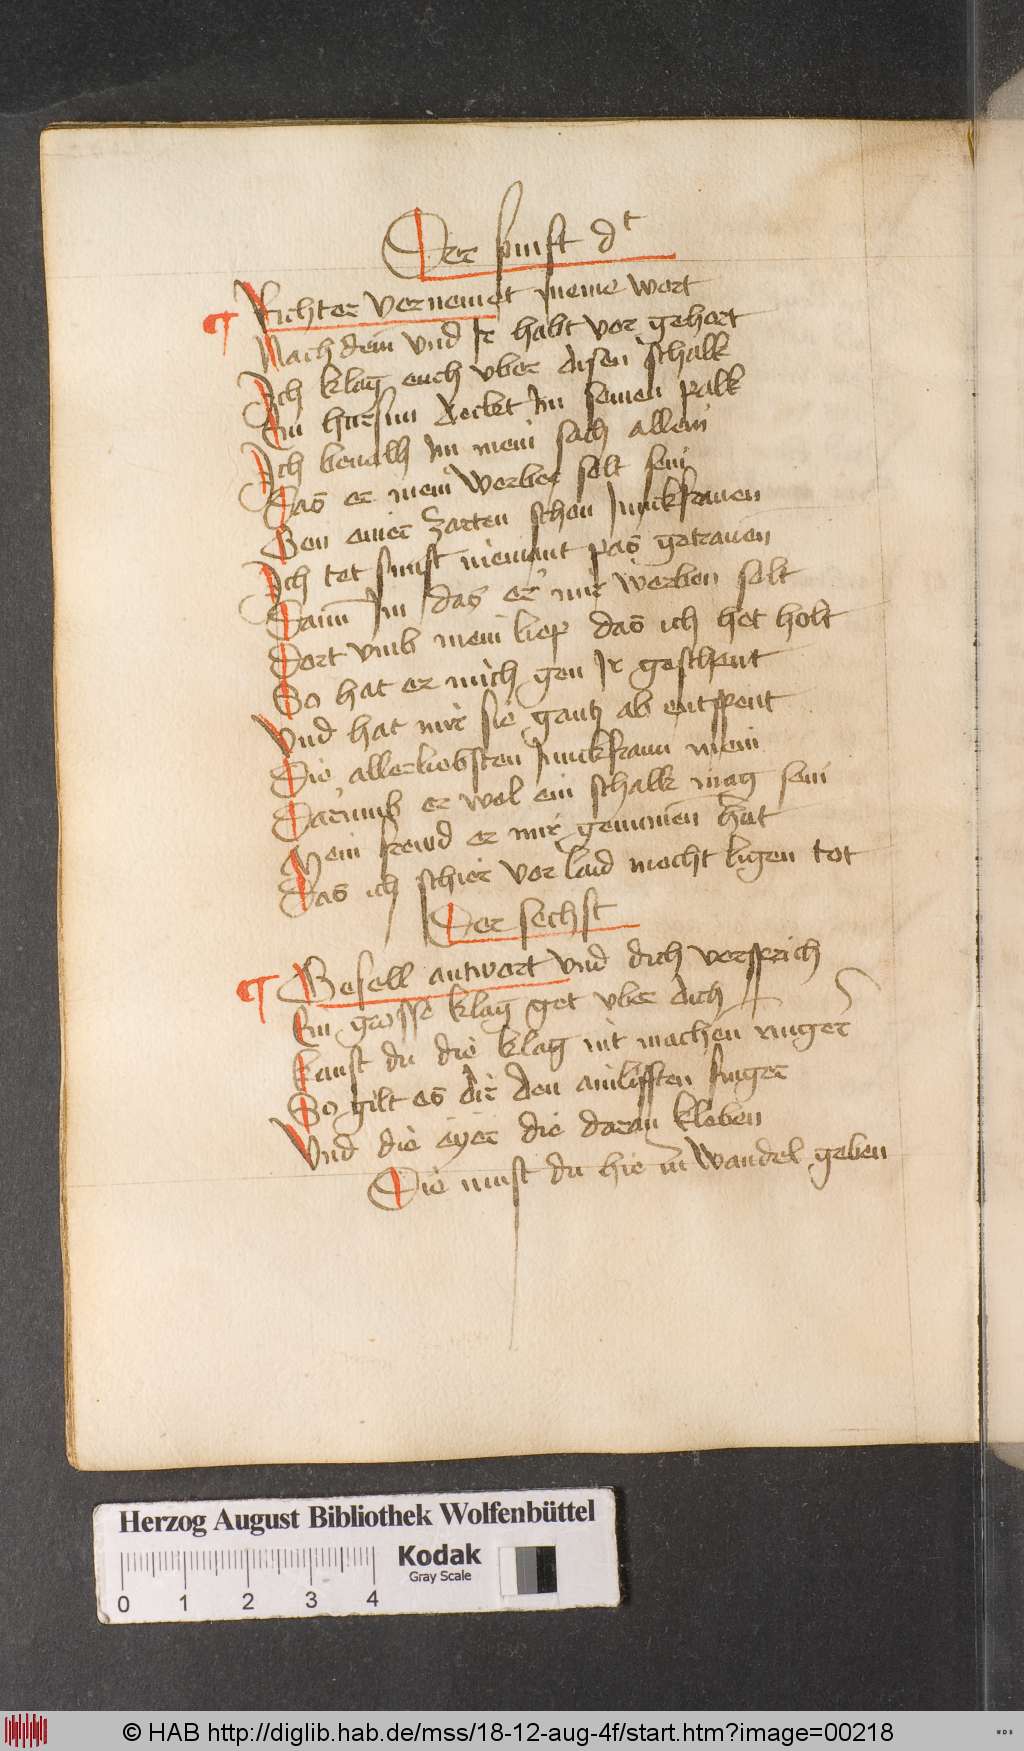 Der funft dt
Richter vernemet meine wort
Nach dem vnd Ir habt vor gehort
Ich klag euch vber disen schalk
Ein hursun deckt Im seinen palk
Ich beualh Im mein sach allein
Das er mein werber solt sein
Gen einer zarten schon Junckfrauen
Ich tet sunst niemant pas getrauen
Dann Im das er mir werben solt
Dort vmb mein liep das ich het holt
So hat er mich gen Ir geschent
Vnd hat mir sie gantz ab entspent
Die allerliebsten Junckfraun mein
Darumb er wol ein schalk mag sein
Mein frewd er mir genumen hat
Das ich schier vor laid mocht ligen tot
Der sechst
Gesell antwort vnd dich versprich
Ein grosse klag get vber dich
kanst du die klag nit machen ringer
So gilt es dir den ainlifften finger
Vnd die eyer die daran kleben
Die must du hie zu wandel geben
Herzog August Bibliothek Wolfenbüttel
Kodak
Gray Scale
0 1 2 3 4
© HAB http://diglib.hab.de/mss/18-12-aug-4f/start.htm?image=00218
WDB